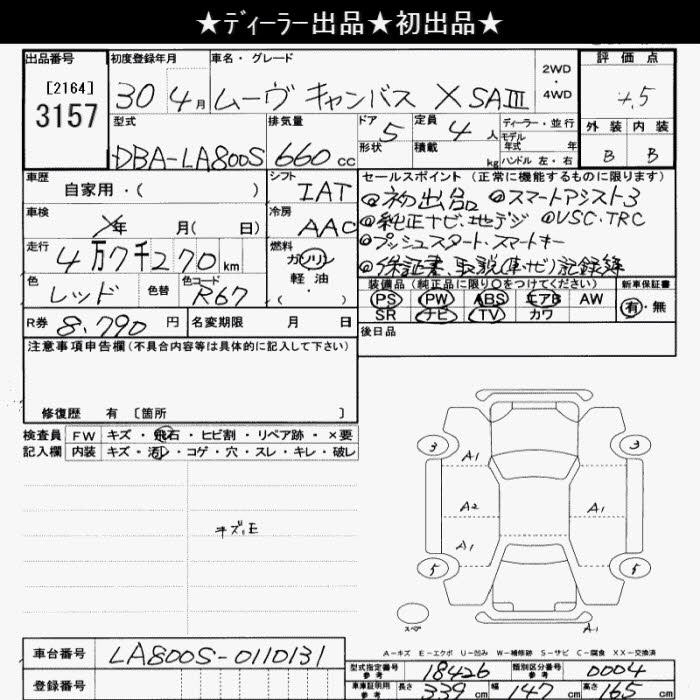 ★ディーラー出品★初出品★
出品番号 初度登録年月 車名・グレード 2WD・4WD 評価点
[2164] 3157
30 4月 ムーヴ キャンバス X SAIII 4.5
型式 排気量 ドア 定員 ディーラー・並行 外装 内装
DBA-LA800S 660cc 5 4人 モデル年式 年 B B
形状 積載 kg ハンドル 左・右
車歴 シフト セールスポイント(正常に機能するものに限ります)
自家用・( ) IAT
◎初出品 ◎スマートアシスト3
車検 冷房 ◎純正ナビ・地デジ ◎VSC・TRC
年 月( 日) AAC
◎プッシュスタート・スマートキー
走行 燃料 ◎保証書、取説(車・ナビ)記録簿
4万7千270km ガソリン・軽油・( )
色 色替 色コード
レッド R67
装備品(純正品に限り○をつけてください) 新車保証書
PS PW ABS エアB AW 有・無
SR ナビ TV カワ
R券 8,790円 名変期限 月 日
後日品
注意事項申告欄(不具合内容等は具体的に記入して下さい)
修復歴 有 [箇所 ]
検査員 FW キズ・飛石・ヒビ割・リペア跡・×要
記入欄 内装 キズ・汚レ・コゲ・穴・スレ・キレ・破レ
キズ、E
3 3
A1
A2 A1
A1
5 5
スペア A1
A-キズ E-エクボ U-凹み W-補修跡 S-サビ C-腐食 XX-交換済
車台番号 LA800S-0110131
型式指定番号 参考 18426 類別区分番号 参考 0004
登録番号
車庫証明用 参考 長さ 339cm 幅 147cm 高さ 165cm